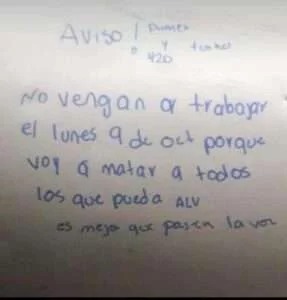 AVISO !
y turno
No vengan a trabajar
el lunes 9 de oct porque
voy a matar a todos
los que pueda ALV
es mejor que pasen la voz